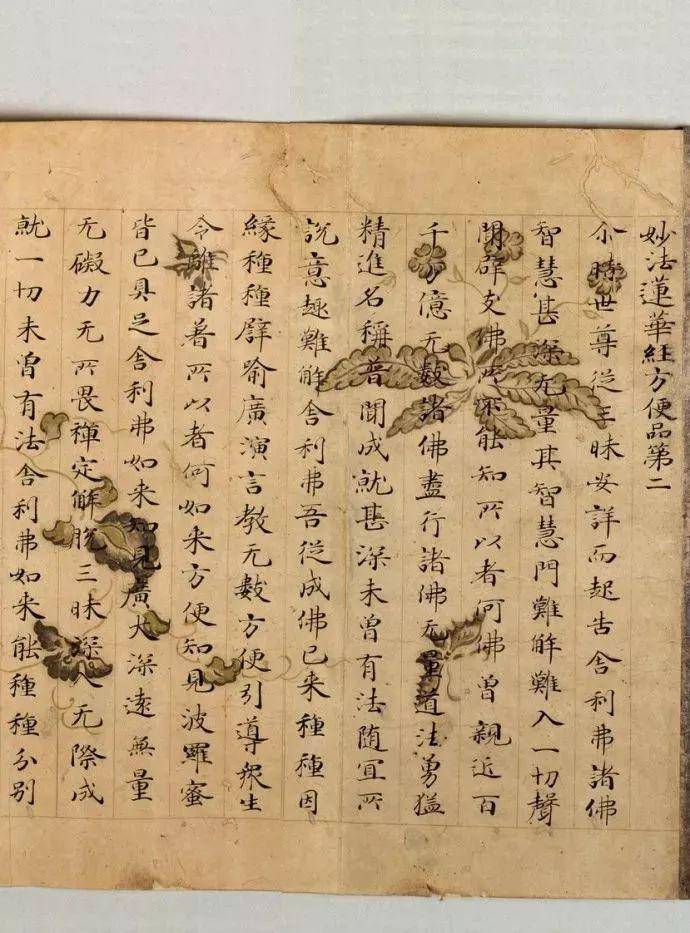 妙法蓮華經方便品第二
尒時世尊從三昧安詳而起告舍利弗諸佛
智慧甚深无量其智慧門難解難入一切聲
聞辟支佛所不能知所以者何佛曾親近百
千万億无數諸佛盡行諸佛无量道法勇猛
精進名稱普聞成就甚深未曾有法随宜所
說意趣難解舍利弗吾從成佛已来種種因
緣種種譬喻廣演言教无數方便引導衆生
令離諸著所以者何如来方便知見波羅蜜
皆已具足舍利弗如来知見廣大深遠無量
无礙力无所畏禪定解脫三昧深入无際成
就一切未曾有法舍利弗如来能種種分别